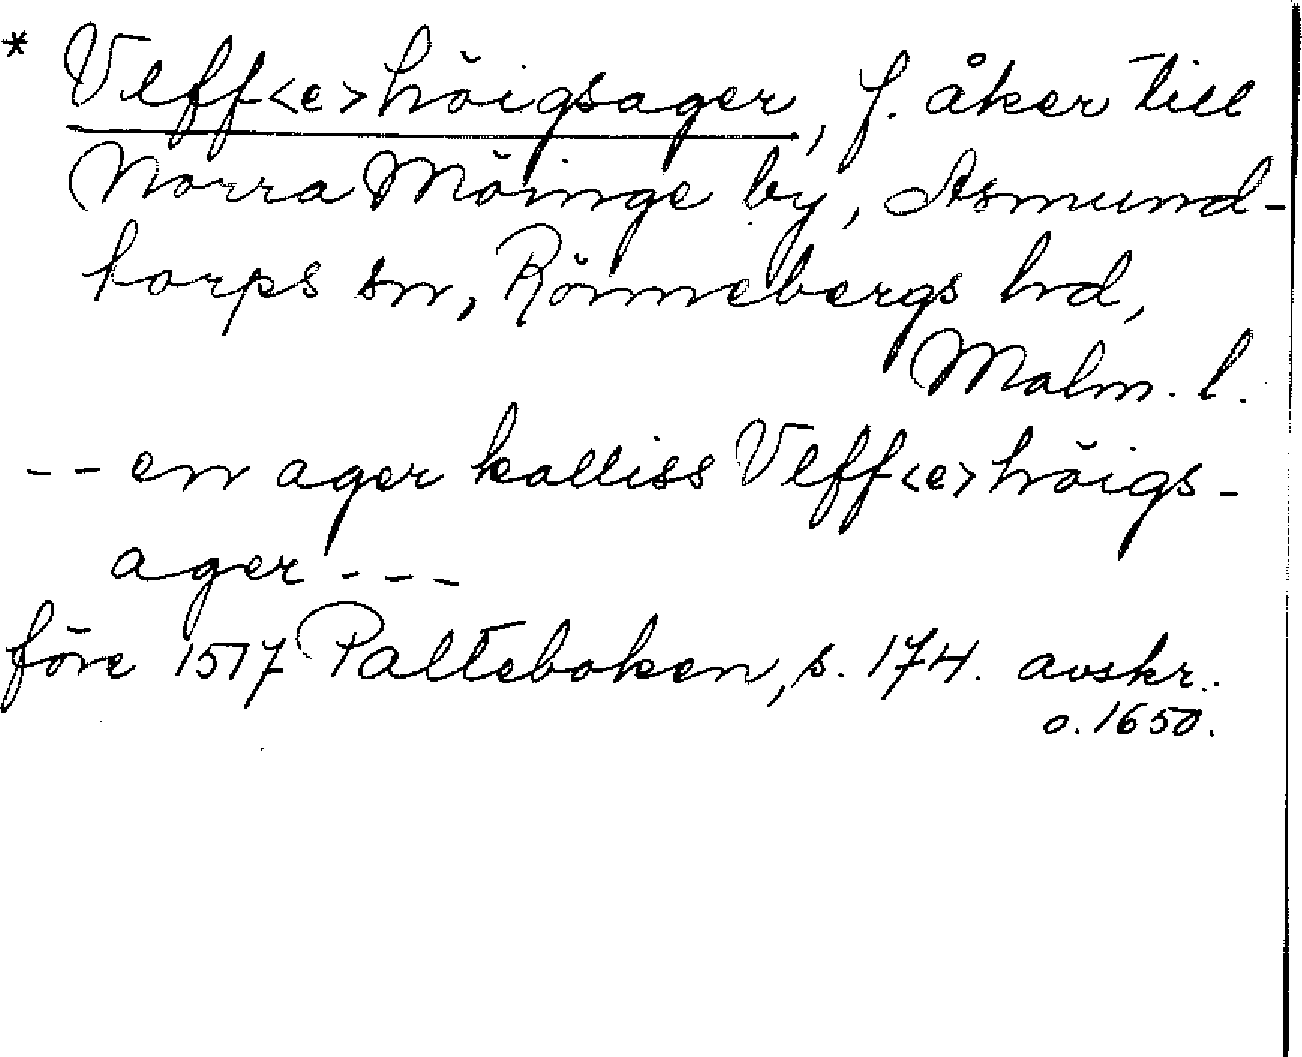 * Vlff<e>höigsager, f. åker till
Norra Möinge by, Asmund-
torps sn, Rönnebergs hd,
Malm. l.
-- en ager kalliss Vlff<e>höigs-
ager ---
före 1517 Palteboken, s. 174. avskr.
o. 1650.